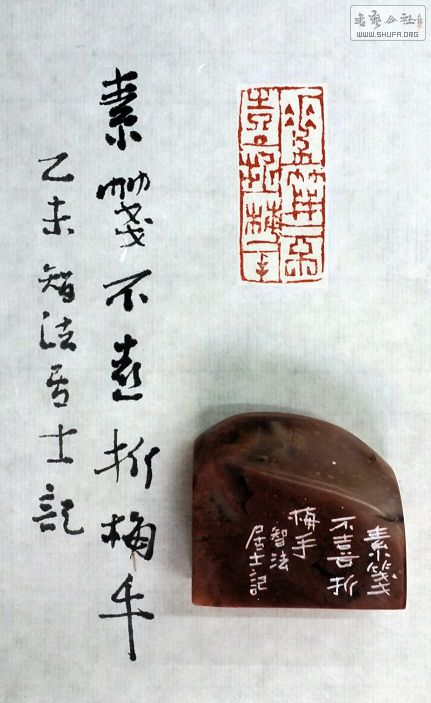 書藝公社
WWW.SHUFA.ORG
素箋不喜折梅手
乙未智法居士記
素箋
不喜折
梅手
智法
居士記